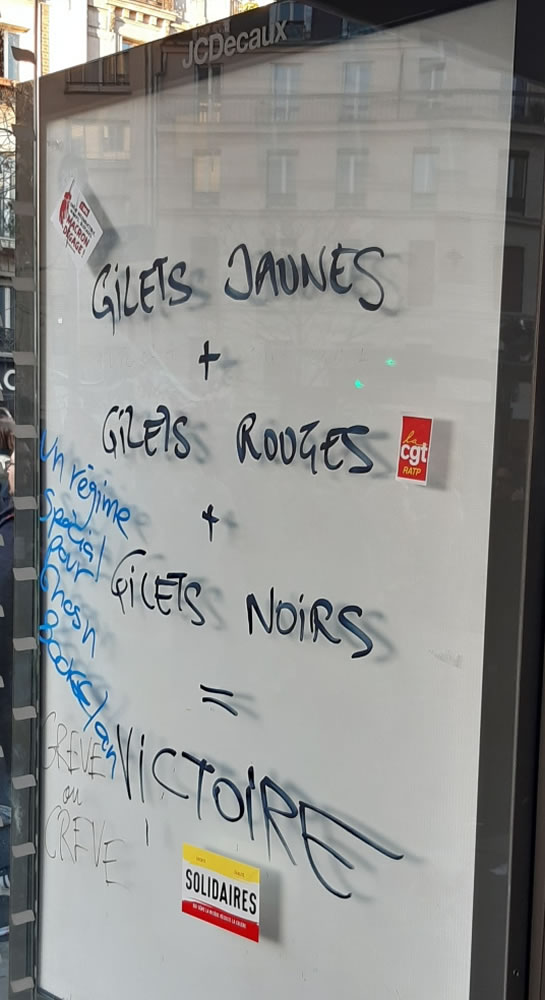 JCDecaux
MACRON
DÉGAGE!
GILETS JAUNES
+
GILETS ROUGES
la
cgt
RATP
+
GILETS NOIRS
=
VICTOIRE
!
Un régime
spécial
pour
GRÈVE
ou
CRÈVE
SOLIDAIRES